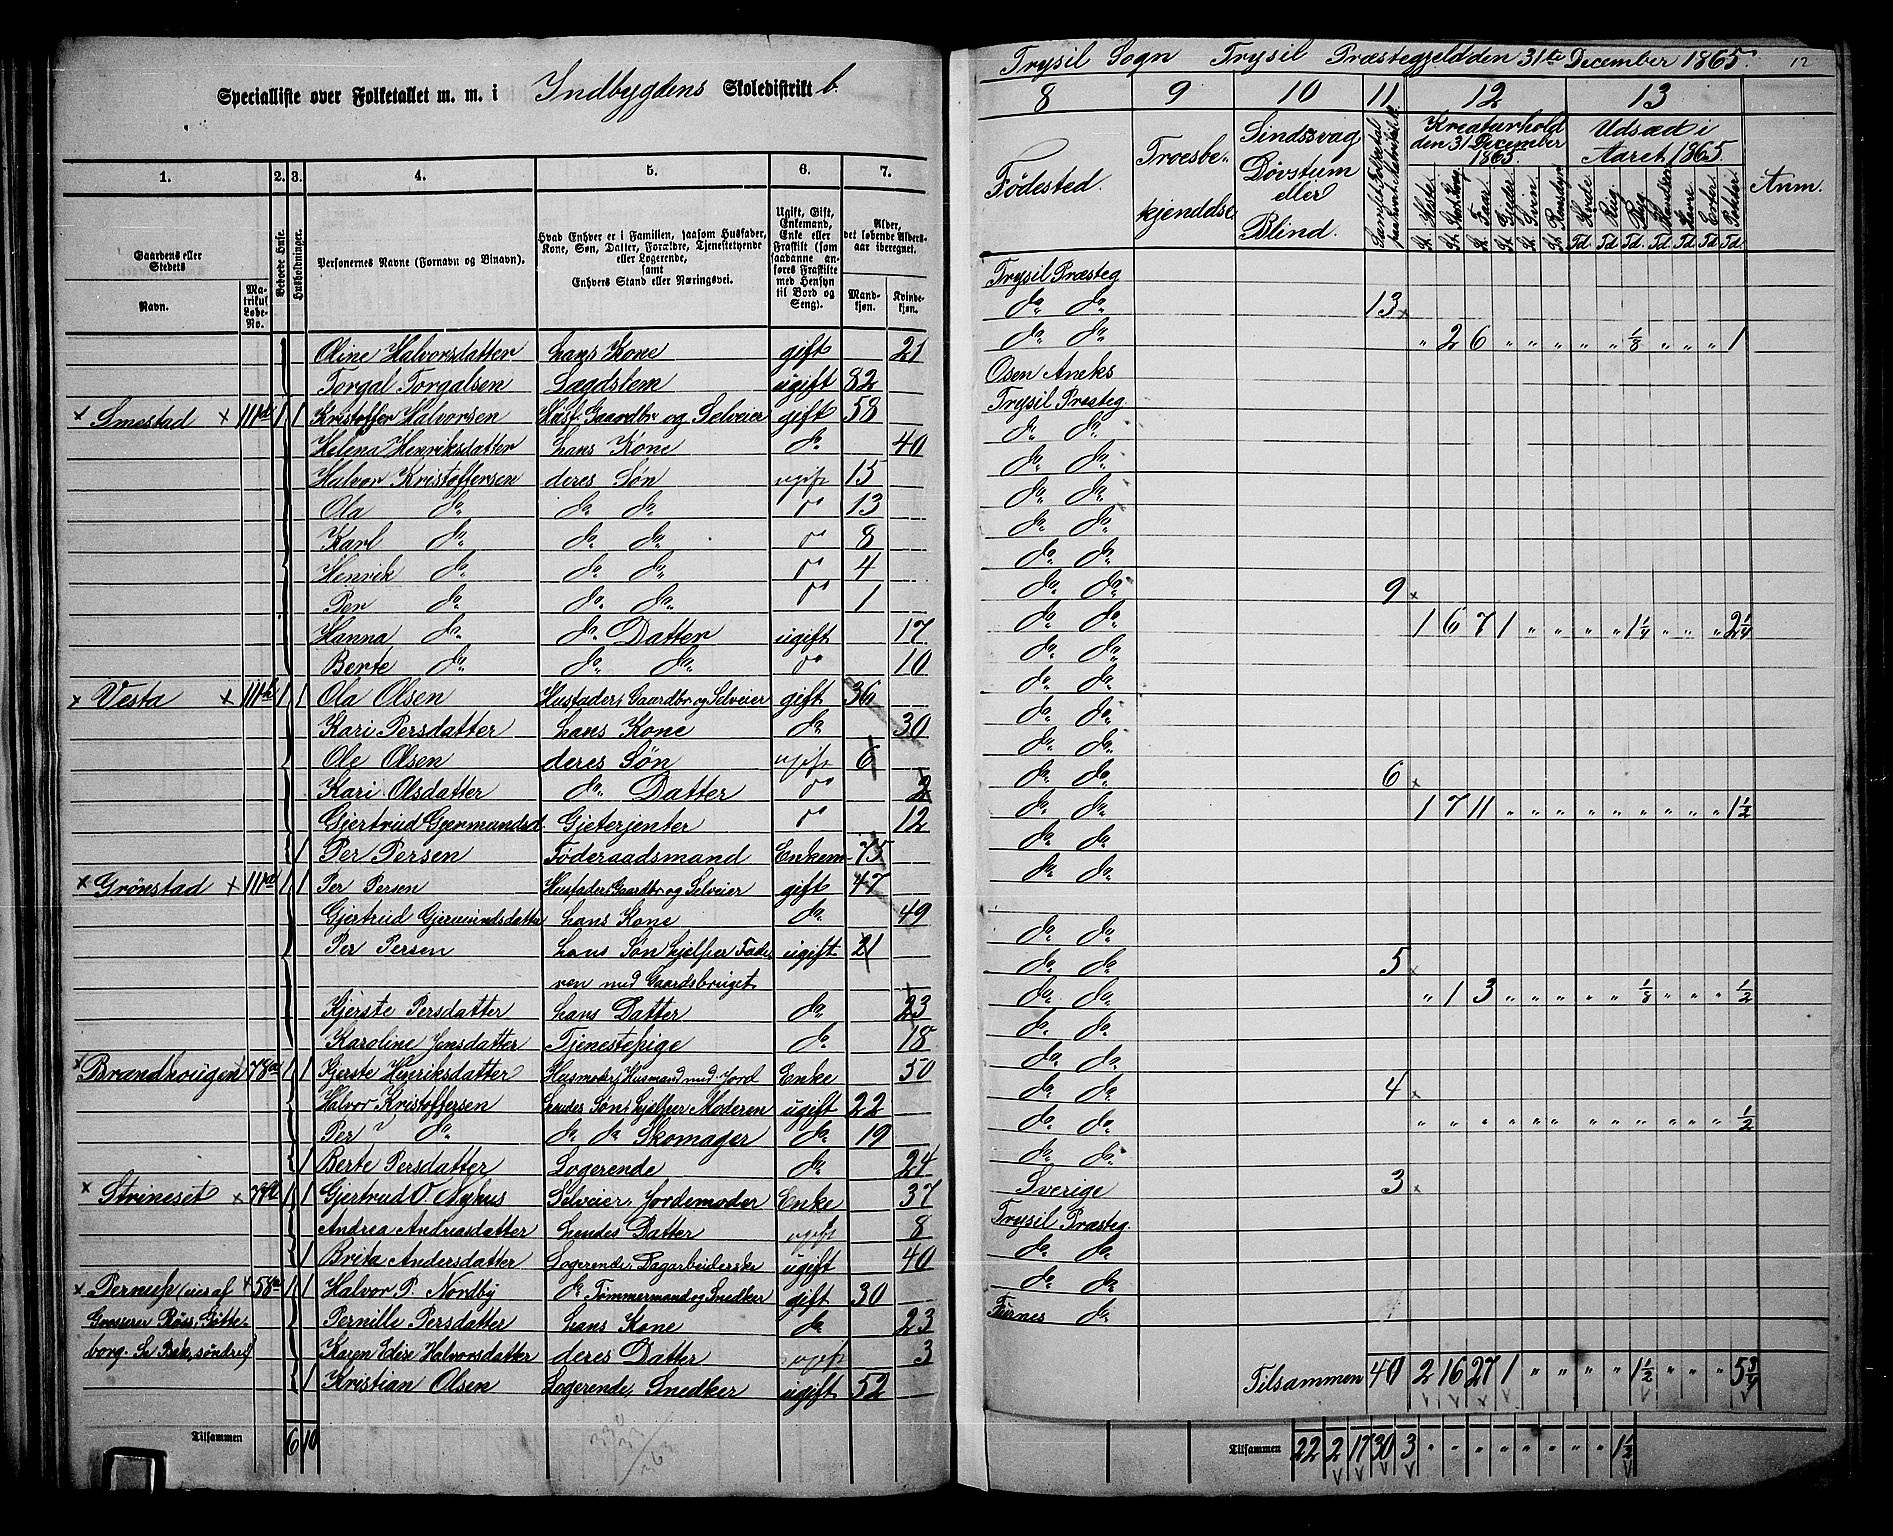 Specialliste over Folketallet m. m. i Indbygdens Skoledistrikt b.
1. 2. 3. 4. 5. 6. 7.
Gaardens eller Stedets
Navn.
Matrikul Løbe-No.
Bebyede Huse.
Husholdninger.
Personernes Navne (Fornavn og Binavn).
Hvad Enhver er i Familien, saasom Husfader, Kone, Søn, Datter, Forældre, Tjenestetyende eller Logerende,
samt
Enhvers Stand eller Næringsvei.
Ugift, Gift, Enkemand, Enke eller Fraskilt (som saadanne anføres Fraskilte med Hensyn til Bord og Seng).
Alder, det løbende Aldersaar iberegnet.
Mandkjøn. Kvindekjøn.
Oline Halvorsdatter hans Kone gift 21
Torgal Torgalsen Lægdslem ugift 82
Smestad 111 1 1 Kristoffer Halvorsen Husf. Gaardbr og Selveier gift 58
Helena Henriksdatter hans Kone do 40
Halvor Kristoffersen deres Søn ugift 15
Ola do do do do 13
Karl do do do do 8
Henrik do do do do 4
Per do do do do 1
Hanna do do Datter ugift 17
Berte do do do do 10
Vesta 111 1 1 Ola Olsen Husfader, Gaardbr og Selveier gift 36
Kari Persdatter hans Kone do 30
Ole Olsen deres Søn ugift 6
Kari Olsdatter do Datter do 2
Gjertrud Gjermundsd. Gjeterjenter do 12
1 Per Persen Føderaadsmand Enkem 75
Grønstad 111 1 1 Per Persen Husfader, Gaardbr og Selveier gift 47
Gjertrud Gjermundsdatter hans Kone do 49
Per Persen hans Søn hjelper Fade- ugift 21
ren med Gaardsbruget
Kjerste Persdatter hans Datter do 23
Karoline Jensdatter Tjenestepige do 18
Brandhougen 78 1 1 Kjerste Henriksdatter Husmoder, Husmand med Jord Enke 50
Halvor Kristoffersen hendes Søn, hjelper Moderen ugift 22
Per do do do Skomager do 19
1 Berte Persdatter Logerende do 24
Strineset 1 1 Gjertrud O. Nyhus Selveier, Jordemoder Enke 37
Andrea Andreasdatter hendes Datter ugift 8
1 Brita Andersdatter Logerende, Dagarbeiderske ugift 40
58 1 1 Halvor P. Nordby do Tømmermand og Snedker gift 30
Pernille Persdatter hans Kone do 23
Karen Edise Halvorsdatter deres Datter ugift 3
1 Kristian Olsen Logerende, Snedker ugift 52
Tilsammen 6 10
Trysil Sogn Trysil Præstegjeld den 31te December 1865. 12
8 9 10 11 12 13
Fødested.
Troesbekjendelse
Sindssvag Døvstum eller Blind.
Kreaturhold den 31 December 1865.
Udsæd i Aaret 1865.
Anm.
Trysil Præsteg
do do 13
do do " 2 6 " " " " " 1/8 " " " 1
Osen Aneks
Trysil Præsteg.
do do
do do
do do
do do
do do
do do 9
do do 1 6 7 1 " " " " 1/4 " " " 2 1/4
do do
do do
do do
do do
do do 6
do do 1 7 11 " " " " " " " " " 1 1/2
do do
do do
do do
do do 5
do do " 1 3 " " " " " 1/8 " " " 1/2
do do
do do
do do 4
do do " " " " " " " " " " " " 1/2
do do
Sverige 3
Trysil Præsteg.
do do
do do
Furnes do
Tilsammen 40 2 16 27 1 " " " " 1/2 " " " 5 3/4
Tilsammen 22 2 17 30 3 " " " " " " " " 1 1/2